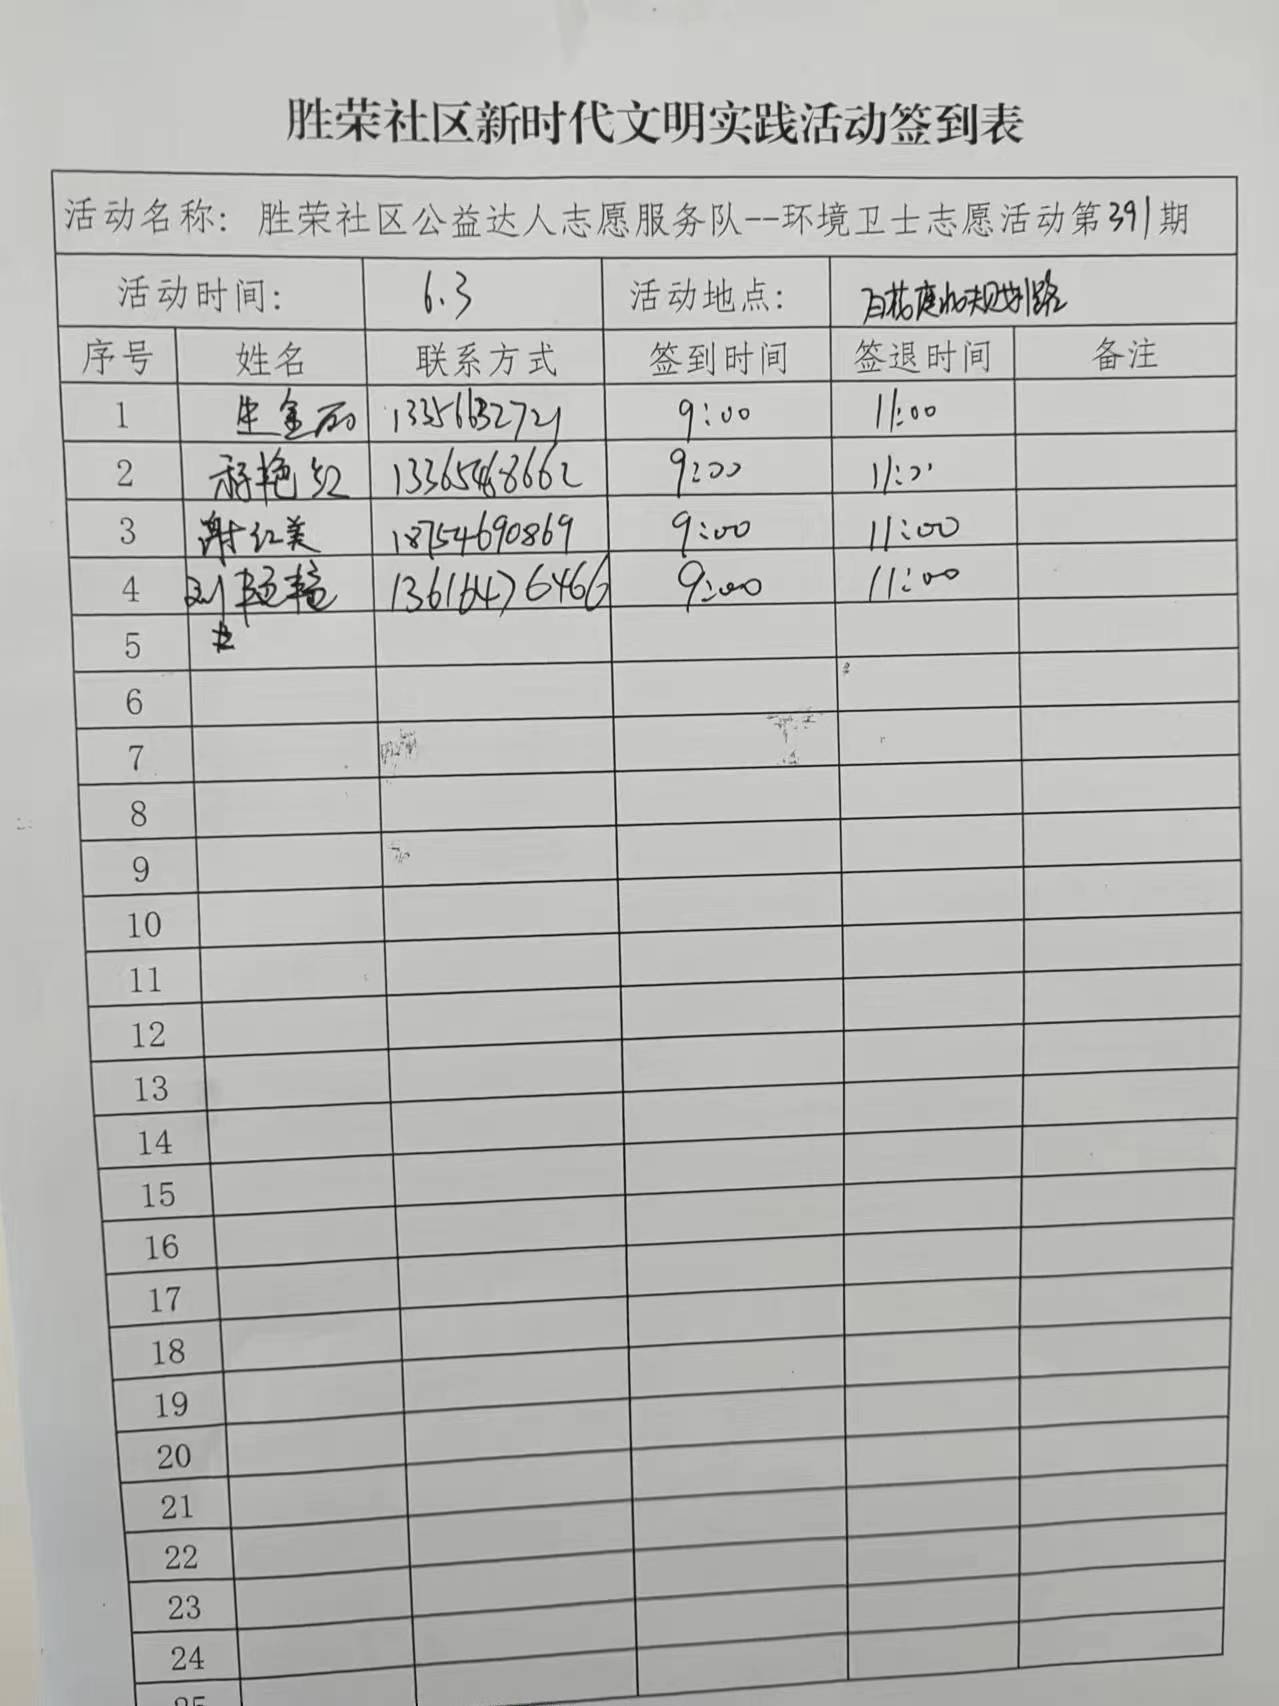 胜荣社区新时代文明实践活动签到表
活动名称：胜荣社区公益达人志愿服务队--环境卫士志愿活动第391期
活动时间： 6.3 活动地点： 百花 规划路
序号 姓名 联系方式 签到时间 签退时间 备注
1 9:00 11:00
2 艳红 13365468662 9:00 11:00
3 谢红美 18754690869 9:00 11:00
4 刘艳艳 13616476466 9:00 11:00
5
6
7
8
9
10
11
12
13
14
15
16
17
18
19
20
21
22
23
24
25